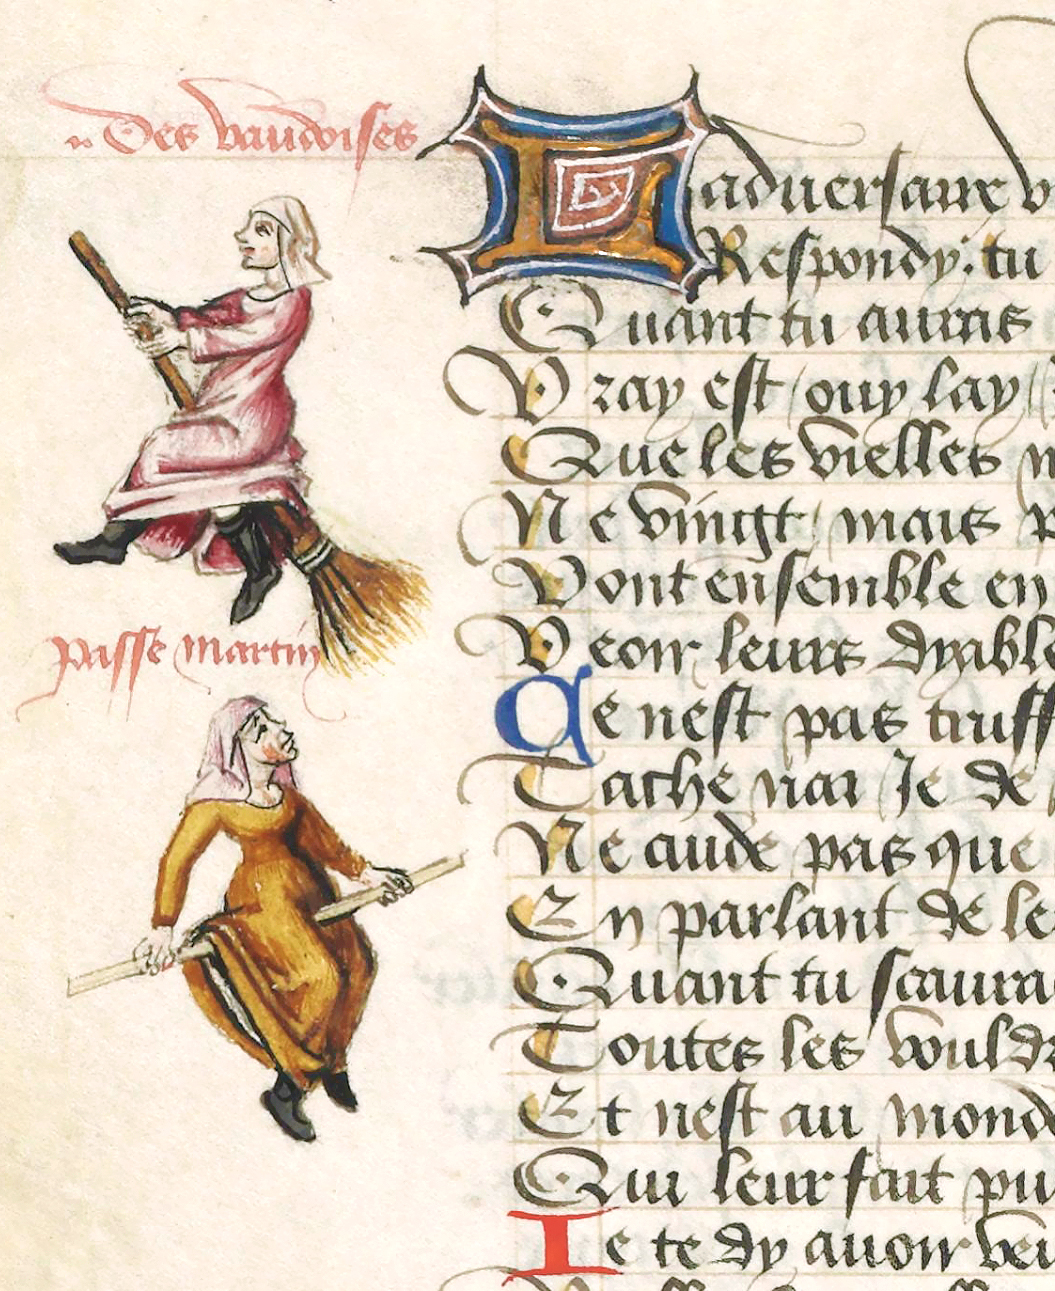 Des vaudoises
passe martin
Ladversaire
Respondy: tu
Quant tu auras
Vray est ouy lay
Que les vielles
Ne vingt mais
Vont ensemble en
Veoir leurs dyable
Ce nest pas truff
Tache nai Je de
Ne cuide pas que
En parlant de le
Quant tu scaura
Toutes les vould
Et nest au mond
Qui leur fait pu
Ie te dy avoir veu